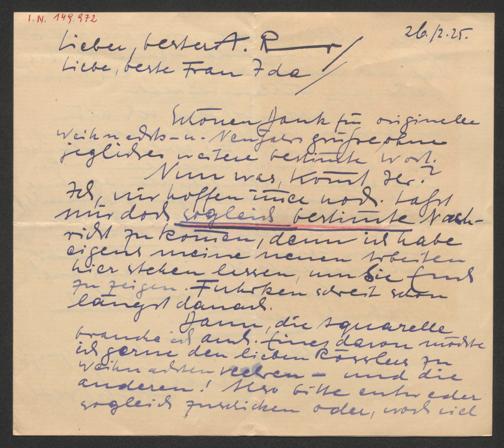 I.N. 149.972
26./2.25.
Lieber, bester A. R
Liebe, beste Frau Ida!
Schönen Dank für originelle
Weihnachts- u. Neujahrsgrüße ohne
jegliches weitere bestimte Wort.
Nun was, Komt Ihr?
Ich, wir hoffen imer noch. Laßt
mir doch sogleich bestimte Nach-
richt zu komen, denn ich habe
eigens meine neuen Arbeiten
hier stehen lassen, um Sie Euch
zu zeigen. schreit schon
längst danach.
Dann, die Aquarelle
brauche ich auch. Eines davon möchte
ich gerne den lieben Rösslers zu
Weihnachten – und die
anderen! Also bitte entweder
sogleich zuschicken oder, noch viel